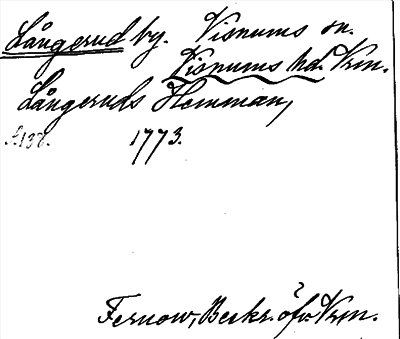 Långerud by. Visnums sn.
Visnums hd. Vrm.
Långeruds Hemman,
1773.
s. 138.
Fernow, Beskr. öfv. Vrm.